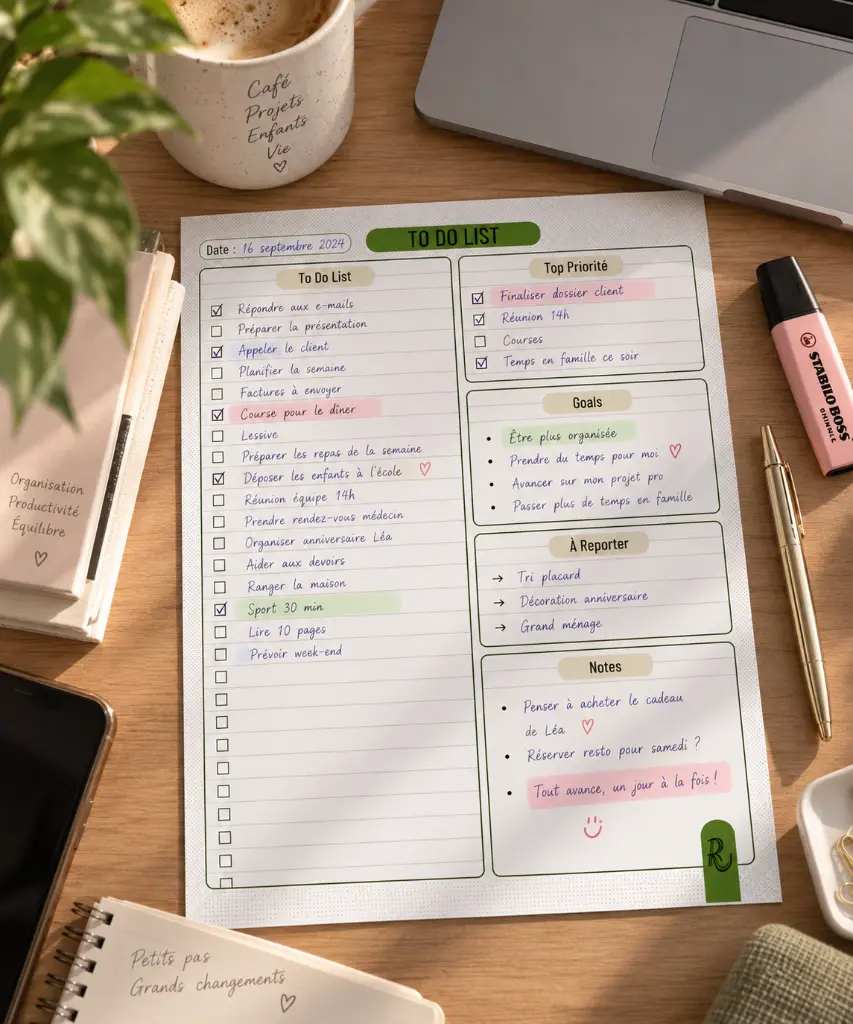 Café
Projets
Enfants
Vie
Date : 16 septembre 2024
TO DO LIST
To Do List
Répondre aux e-mails
Préparer la présentation
Appeler le client
Planifier la semaine
Factures à envoyer
Course pour le dîner
Lessive
Préparer les repas de la semaine
Déposer les enfants à l'école
Réunion équipe 14h
Prendre rendez-vous médecin
Organiser anniversaire Léa
Aider aux devoirs
Ranger la maison
Sport 30 min
Lire 10 pages
Prévoir week-end
Top Priorité
Finaliser dossier client
Réunion 14h
Courses
Temps en famille ce soir
Goals
Être plus organisée
Prendre du temps pour moi
Avancer sur mon projet pro
Passer plus de temps en famille
À Reporter
→ Tri placard
→ Décoration anniversaire
→ Grand ménage
Notes
Penser à acheter le cadeau
de Léa
Réserver resto pour samedi ?
Tout avance, un jour à la fois !
R
STABILO BOSS
Organisation
Productivité
Équilibre
Petits pas
Grands changements